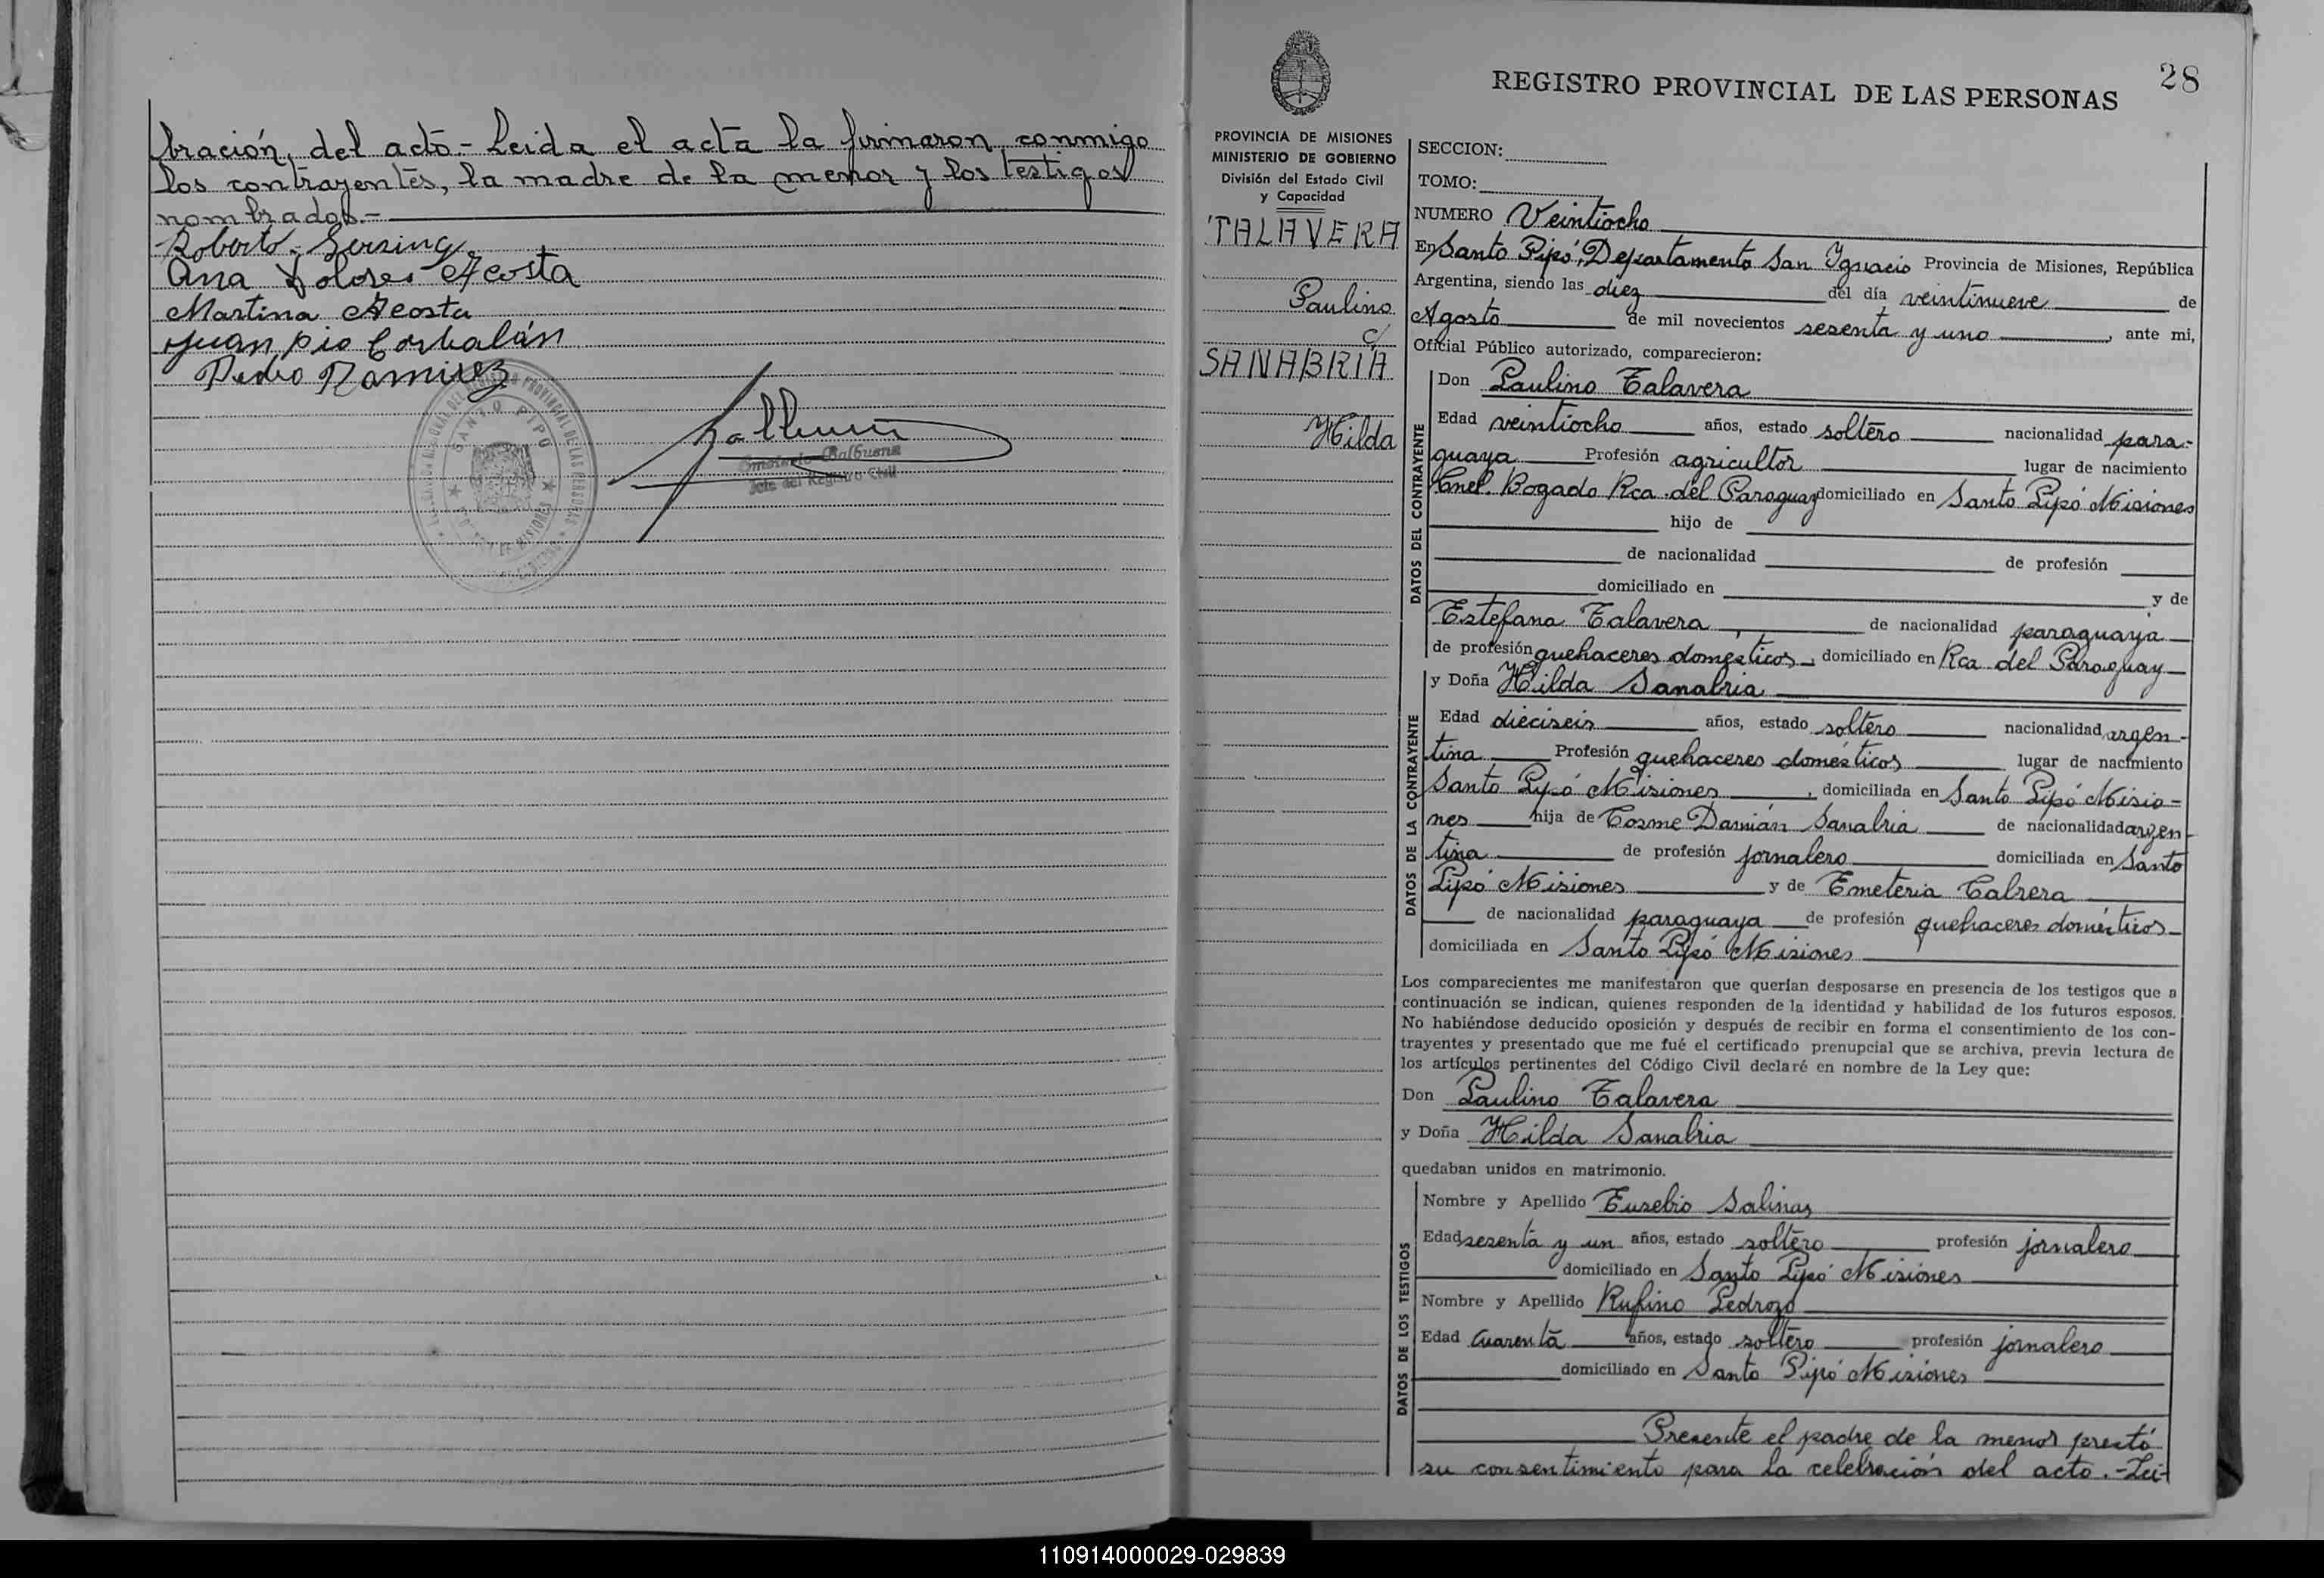 bración, del acto.- Leida el acta la firmaron conmigo
los contrayentes, la madre de la menor y los testigos
nombrados.-
Roberto Gersing
Ana Dolores Acosta
Martina Acosta
Juan Pio Corbalán
Pedro Ramirez
SANTO PIPO
Balbuena
Jefe del Registro Civil
28
REGISTRO PROVINCIAL DE LAS PERSONAS
PROVINCIA DE MISIONES
MINISTERIO DE GOBIERNO
División del Estado Civil
y Capacidad
TALAVERA
Paulino
c/
SANABRIA
Hilda
SECCION:
TOMO:
NUMERO Veintiocho
En Santo Pipó, Departamento San Ignacio Provincia de Misiones, República
Argentina, siendo las diez del día veintinueve de
Agosto de mil novecientos sesenta y uno, ante mi,
Oficial Público autorizado, comparecieron:
DATOS DEL CONTRAYENTE
Don Paulino Talavera
Edad veintiocho años, estado soltero nacionalidad para-
guaya Profesión agricultor lugar de nacimiento
Cnel. Bogado Rca. del Paraguay domiciliado en Santo Pipó Misiones
hijo de
de nacionalidad de profesión
domiciliado en y de
Estefana Talavera, de nacionalidad paraguaya
de profesión quehaceres domesticos, domiciliado en Rca. del Paraguay
DATOS DE LA CONTRAYENTE
y Doña Hilda Sanabria
Edad dieciseis años, estado soltero nacionalidad argen-
tina Profesión quehaceres domésticos lugar de nacimiento
Santo Pipó Misiones, domiciliada en Santo Pipó Misio-
nes hija de Cosme Damián Sanabria de nacionalidad argen-
tina de profesión jornalero domiciliada en Santo
Pipó Misiones y de Emeteria Cabrera
de nacionalidad paraguaya de profesión quehaceres domésticos
domiciliada en Santo Pipó Misiones
Los comparecientes me manifestaron que querían desposarse en presencia de los testigos que a
continuación se indican, quienes responden de la identidad y habilidad de los futuros esposos.
No habiéndose deducido oposición y después de recibir en forma el consentimiento de los con-
trayentes y presentado que me fué el certificado prenupcial que se archiva, previa lectura de
los artículos pertinentes del Código Civil declaré en nombre de la Ley que:
Don Paulino Talavera
y Doña Hilda Sanabria
quedaban unidos en matrimonio.
DATOS DE LOS TESTIGOS
Nombre y Apellido Eusebio Salinas
Edad sesenta y un años, estado soltero profesión jornalero
domiciliado en Santo Pipó Misiones
Nombre y Apellido Rufino Pedrozo
Edad cuarenta años, estado soltero profesión jornalero
domiciliado en Santo Pipó Misiones
Presente el padre de la menor prestó
su consentimiento para la celebración del acto.-Lei-
110914000029-029839